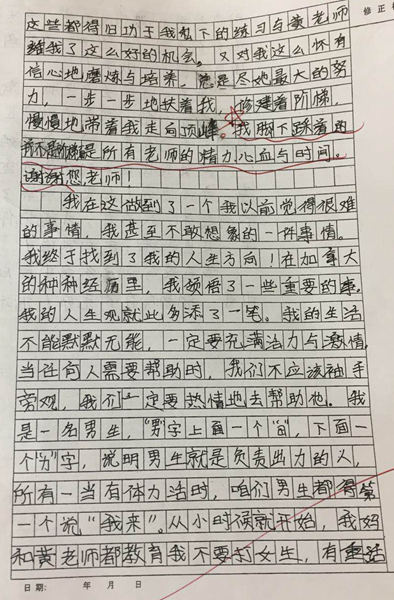 修正
这些都得归功于我私下的练习与黄老师
给我了这么好的机会。又对我这么怀有
信心地磨炼与培养，总是尽她最大的努
力，一步一步地扶着我，修建着阶梯，
慢慢地带着我走向顶峰。我脚下踩着的
是所有老师的精力心血与时间。
谢谢您老师！
我在这做到了一个我以前觉得很难
的事情，我甚至不敢想象的一件事情。
我终于找到了我的人生方向！在加拿大
的种种经历里，我领悟了一些重要的事。
我的人生观就此多添了一笔。我的生活
不能默默无能，一定要充满活力与激情。
当任何人需要帮助时，我们不应该袖手
旁观，我们一定要热情地去帮助他。我
是一名男生，"男"字上面一个"田"，下面一
个"力"字，说明男生就是负责出力的人，
所有一当有体力活时，咱们男生都得第
一个说"我来"。从小时候就开始，我妈
和黄老师都教育我不要打女生，有重活
日期： 年 月 日